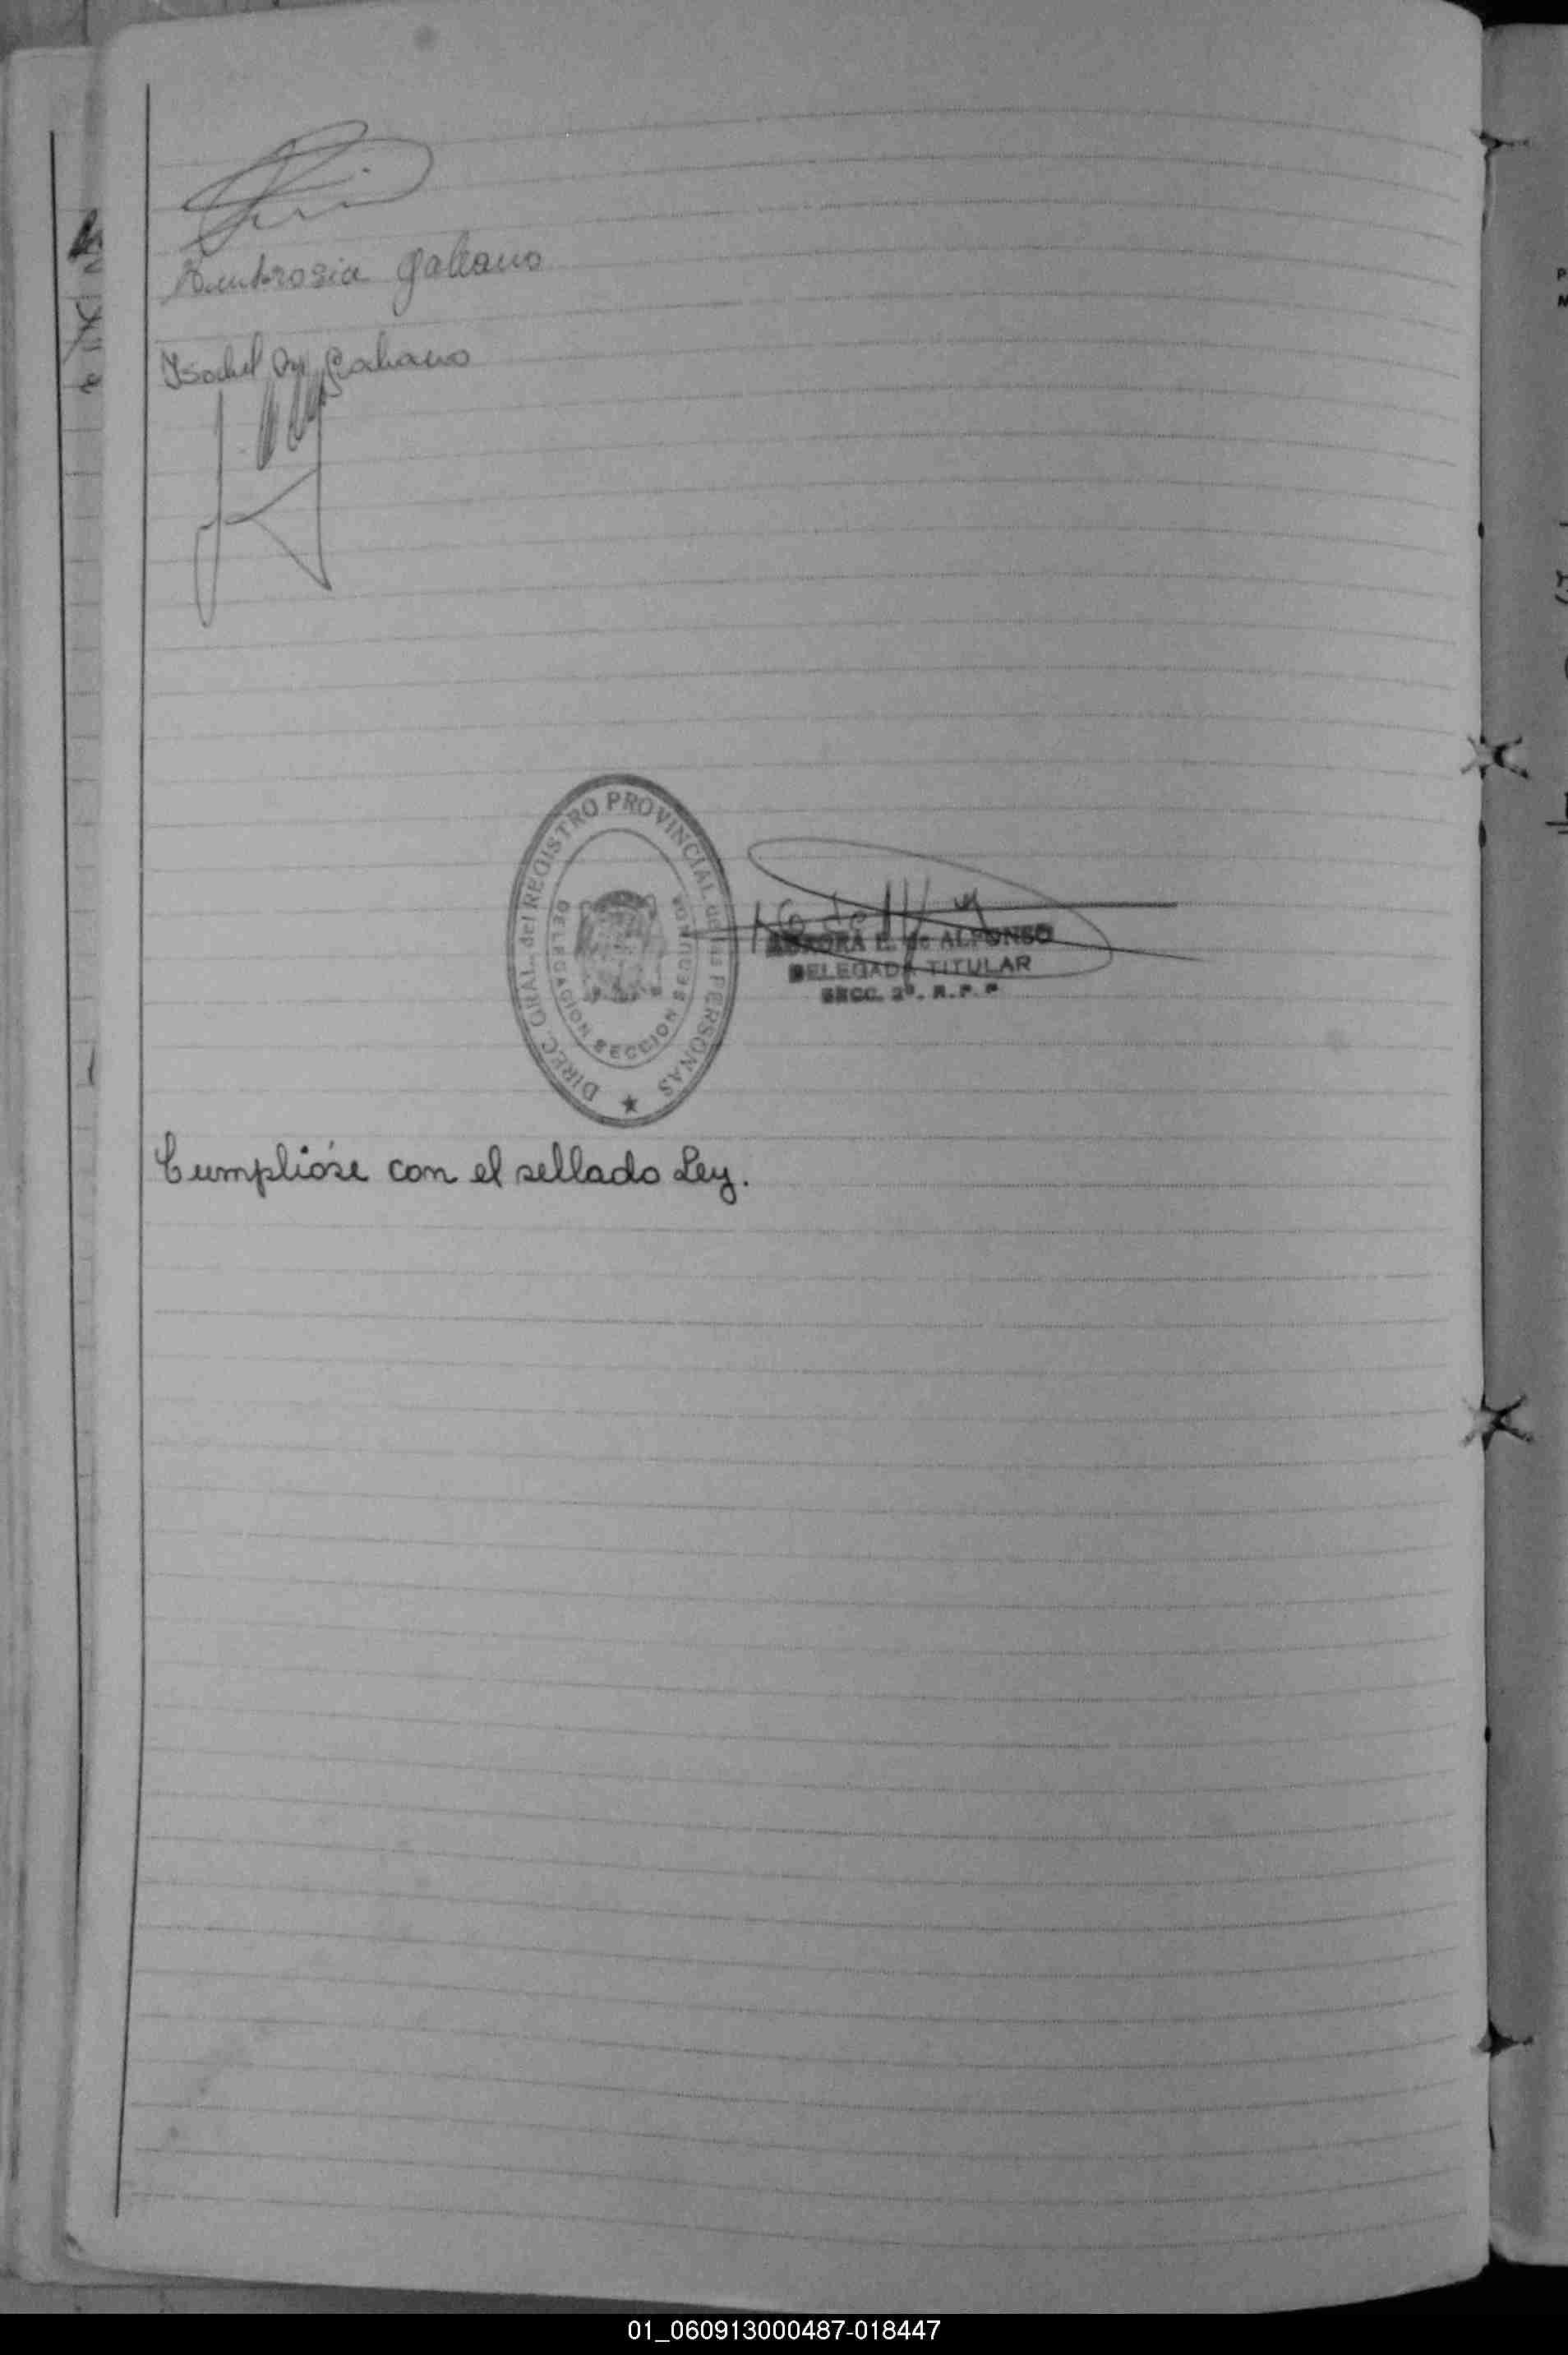 Ambrosia Galeano
Isabel
DIREC. GRAL. del REGISTRO PROVINCIAL de las PERSONAS
DELEGACION SECCION SEGUNDA
AURORA E. de ALFONSO
DELEGADA TITULAR
SECC. 2ª. R.P.P
Cumplióse con el sellado Ley.
01_060913000487-018447